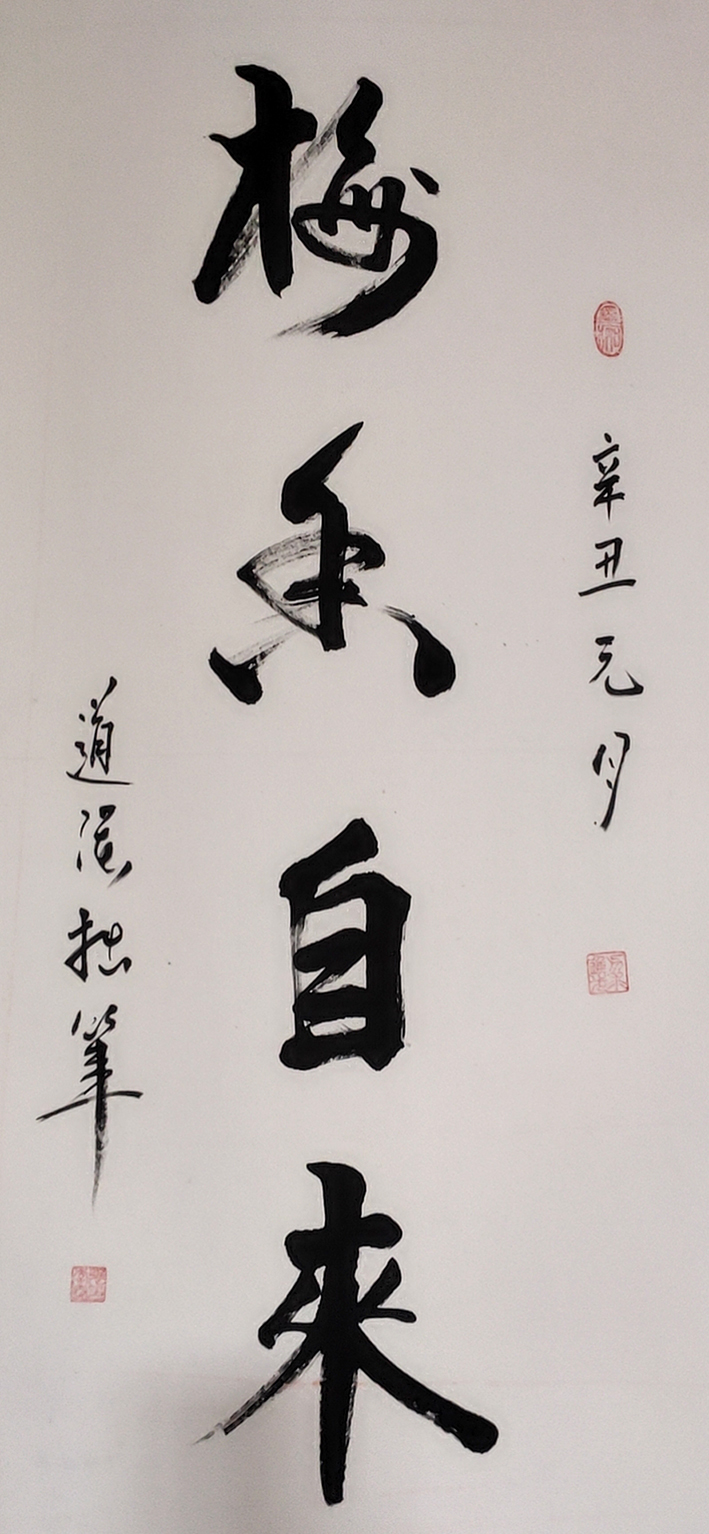 辛丑元月
梅香自來
道拙筆